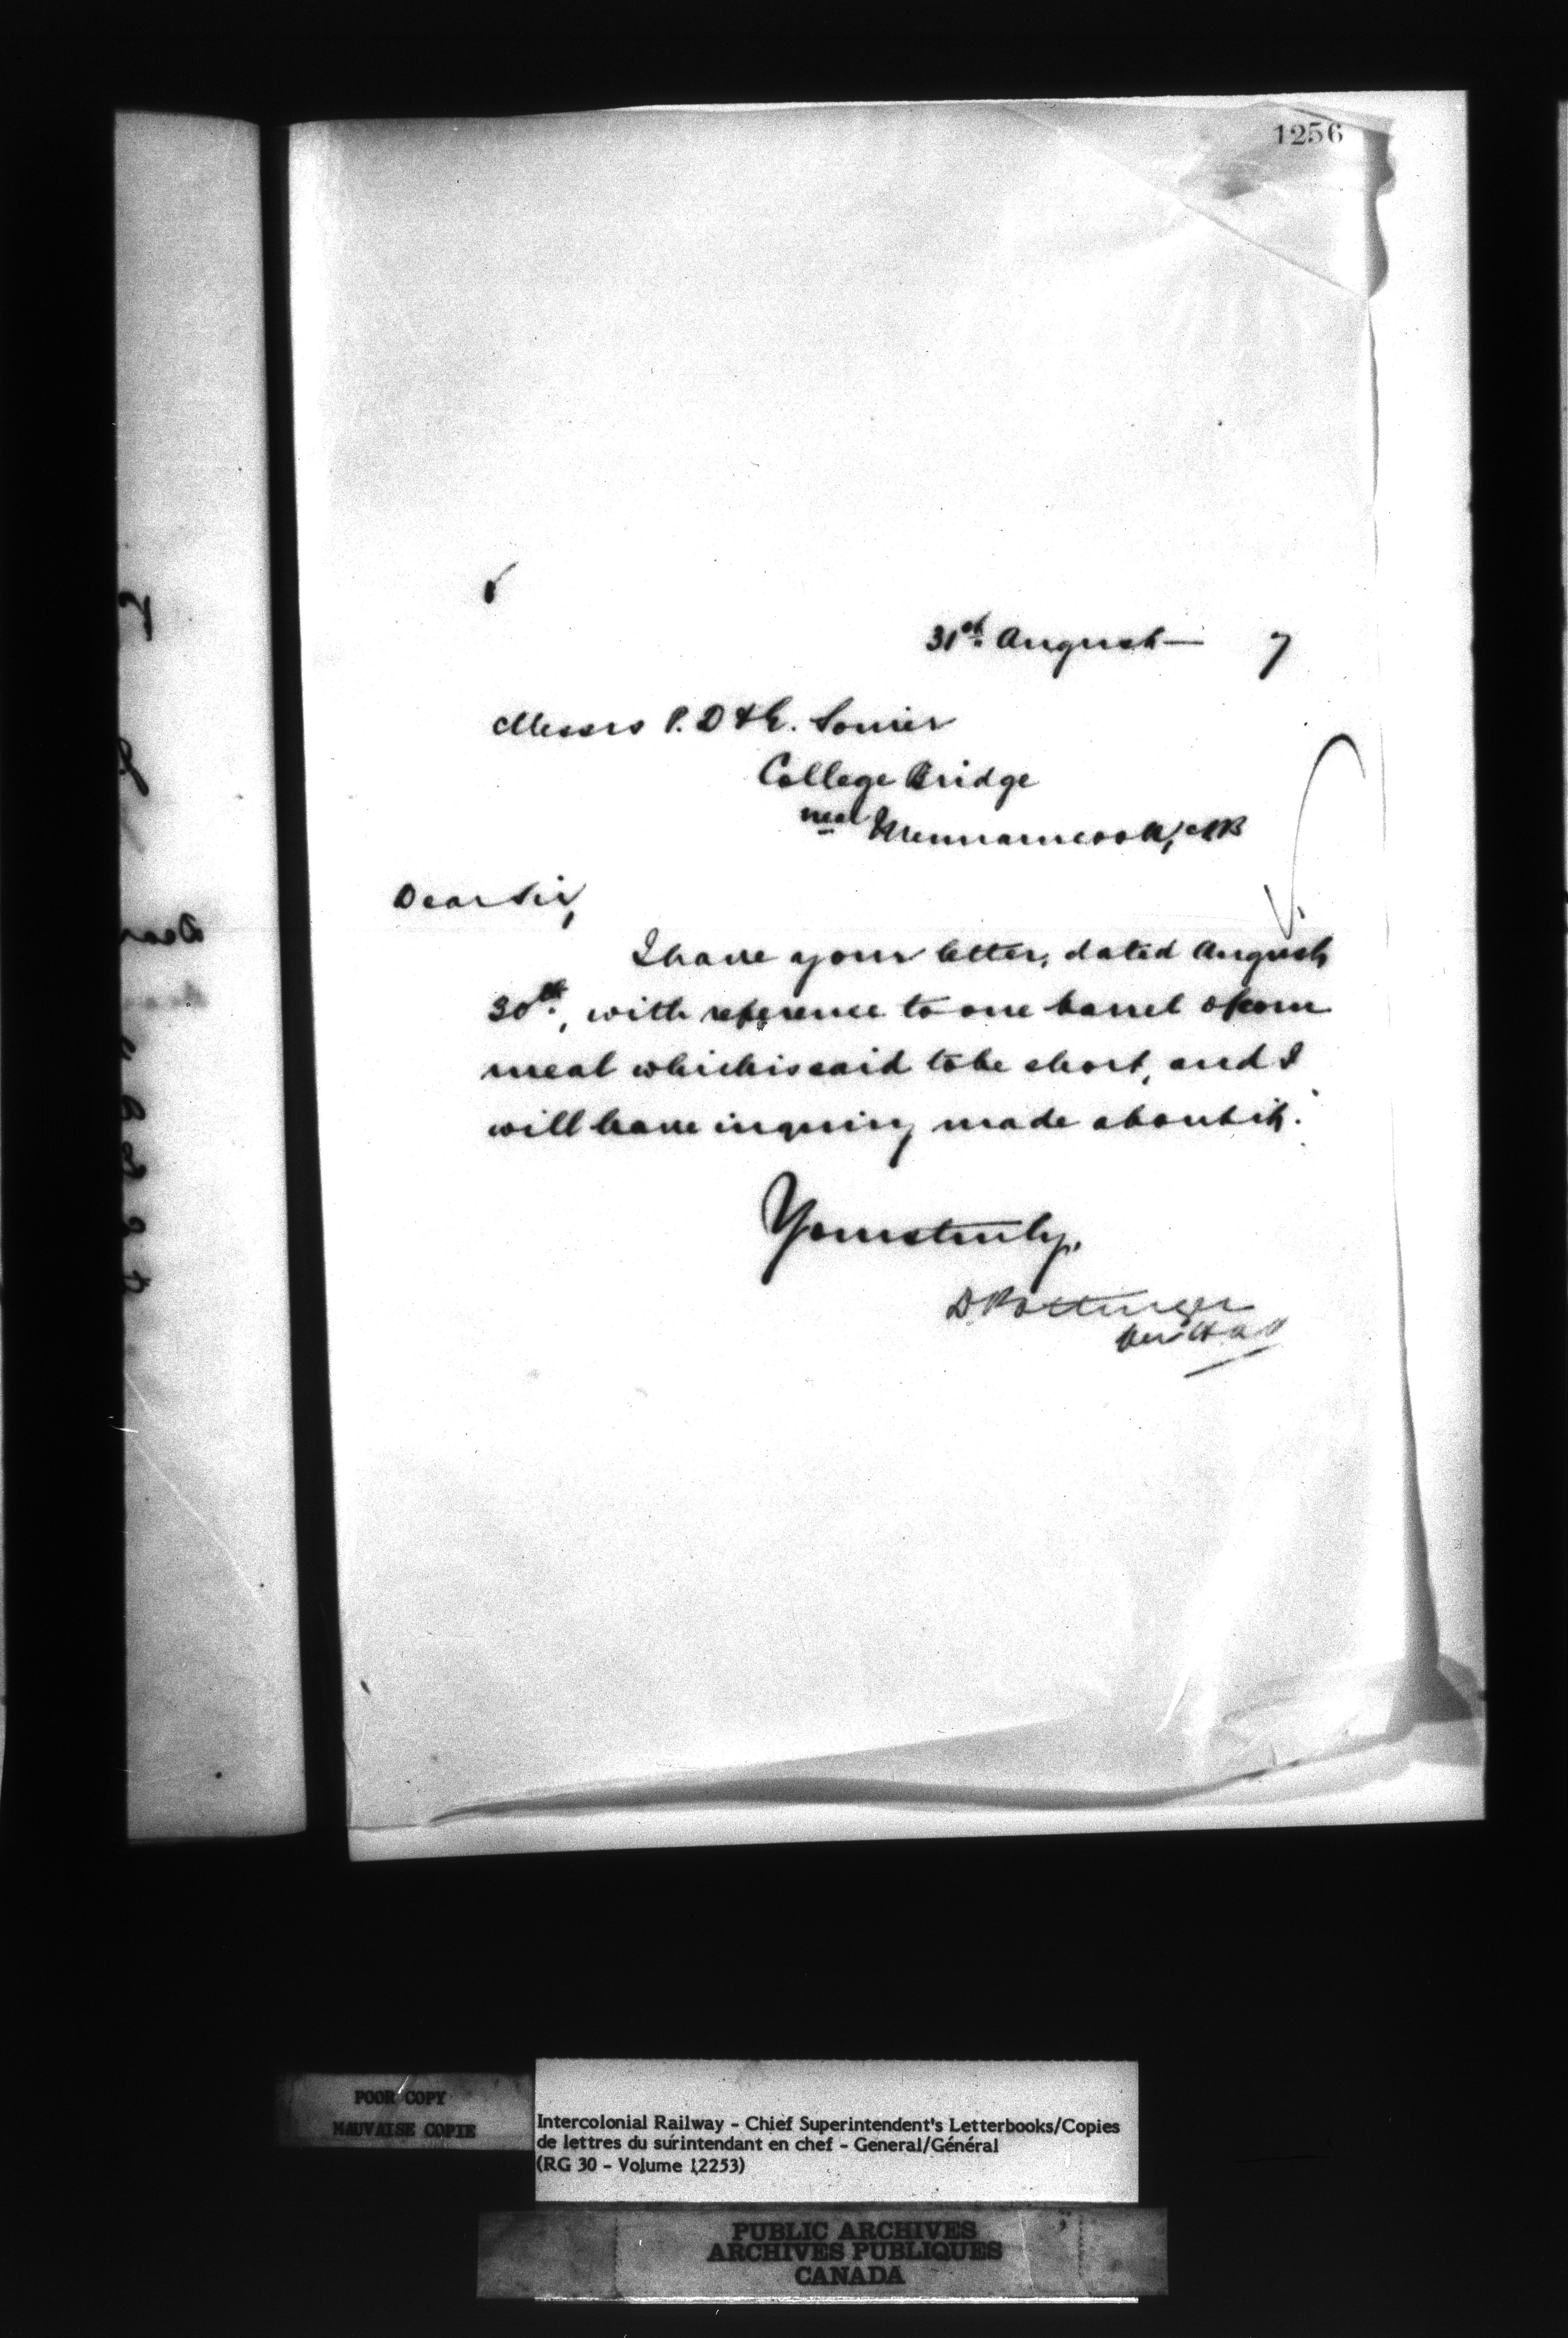 1256
31st. August— 7
Messrs P. D & E.
College Bridge
near Memramcook, NB
Dear Sir,
I have your letter, dated August
30th., with reference to one barrel of corn
meal which is said to be short, and I
will have inquiry made about it.
Yours truly,
D. Pottinger
Dear
POOR COPY
MAUVAISE COPIE
Intercolonial Railway - Chief Superintendent's Letterbooks/Copies
de lettres du surintendant en chef - General/Général
(RG 30 - Volume 12253)
PUBLIC ARCHIVES
ARCHIVES PUBLIQUES
CANADA